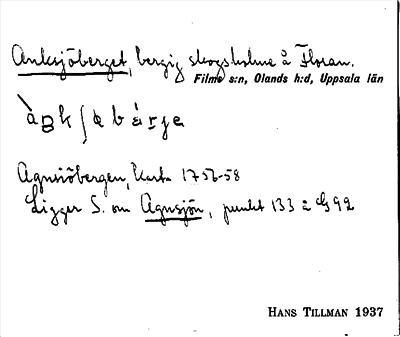 Anksjöberget, bergig skogsholme å Floran.
Films s:n, Olands h:d, Uppsala län
Agnsiöbergen, Karta 1756-58
Ligger S. om Agnsjön, punkt 133 å G 92
HANS TILLMAN 1937